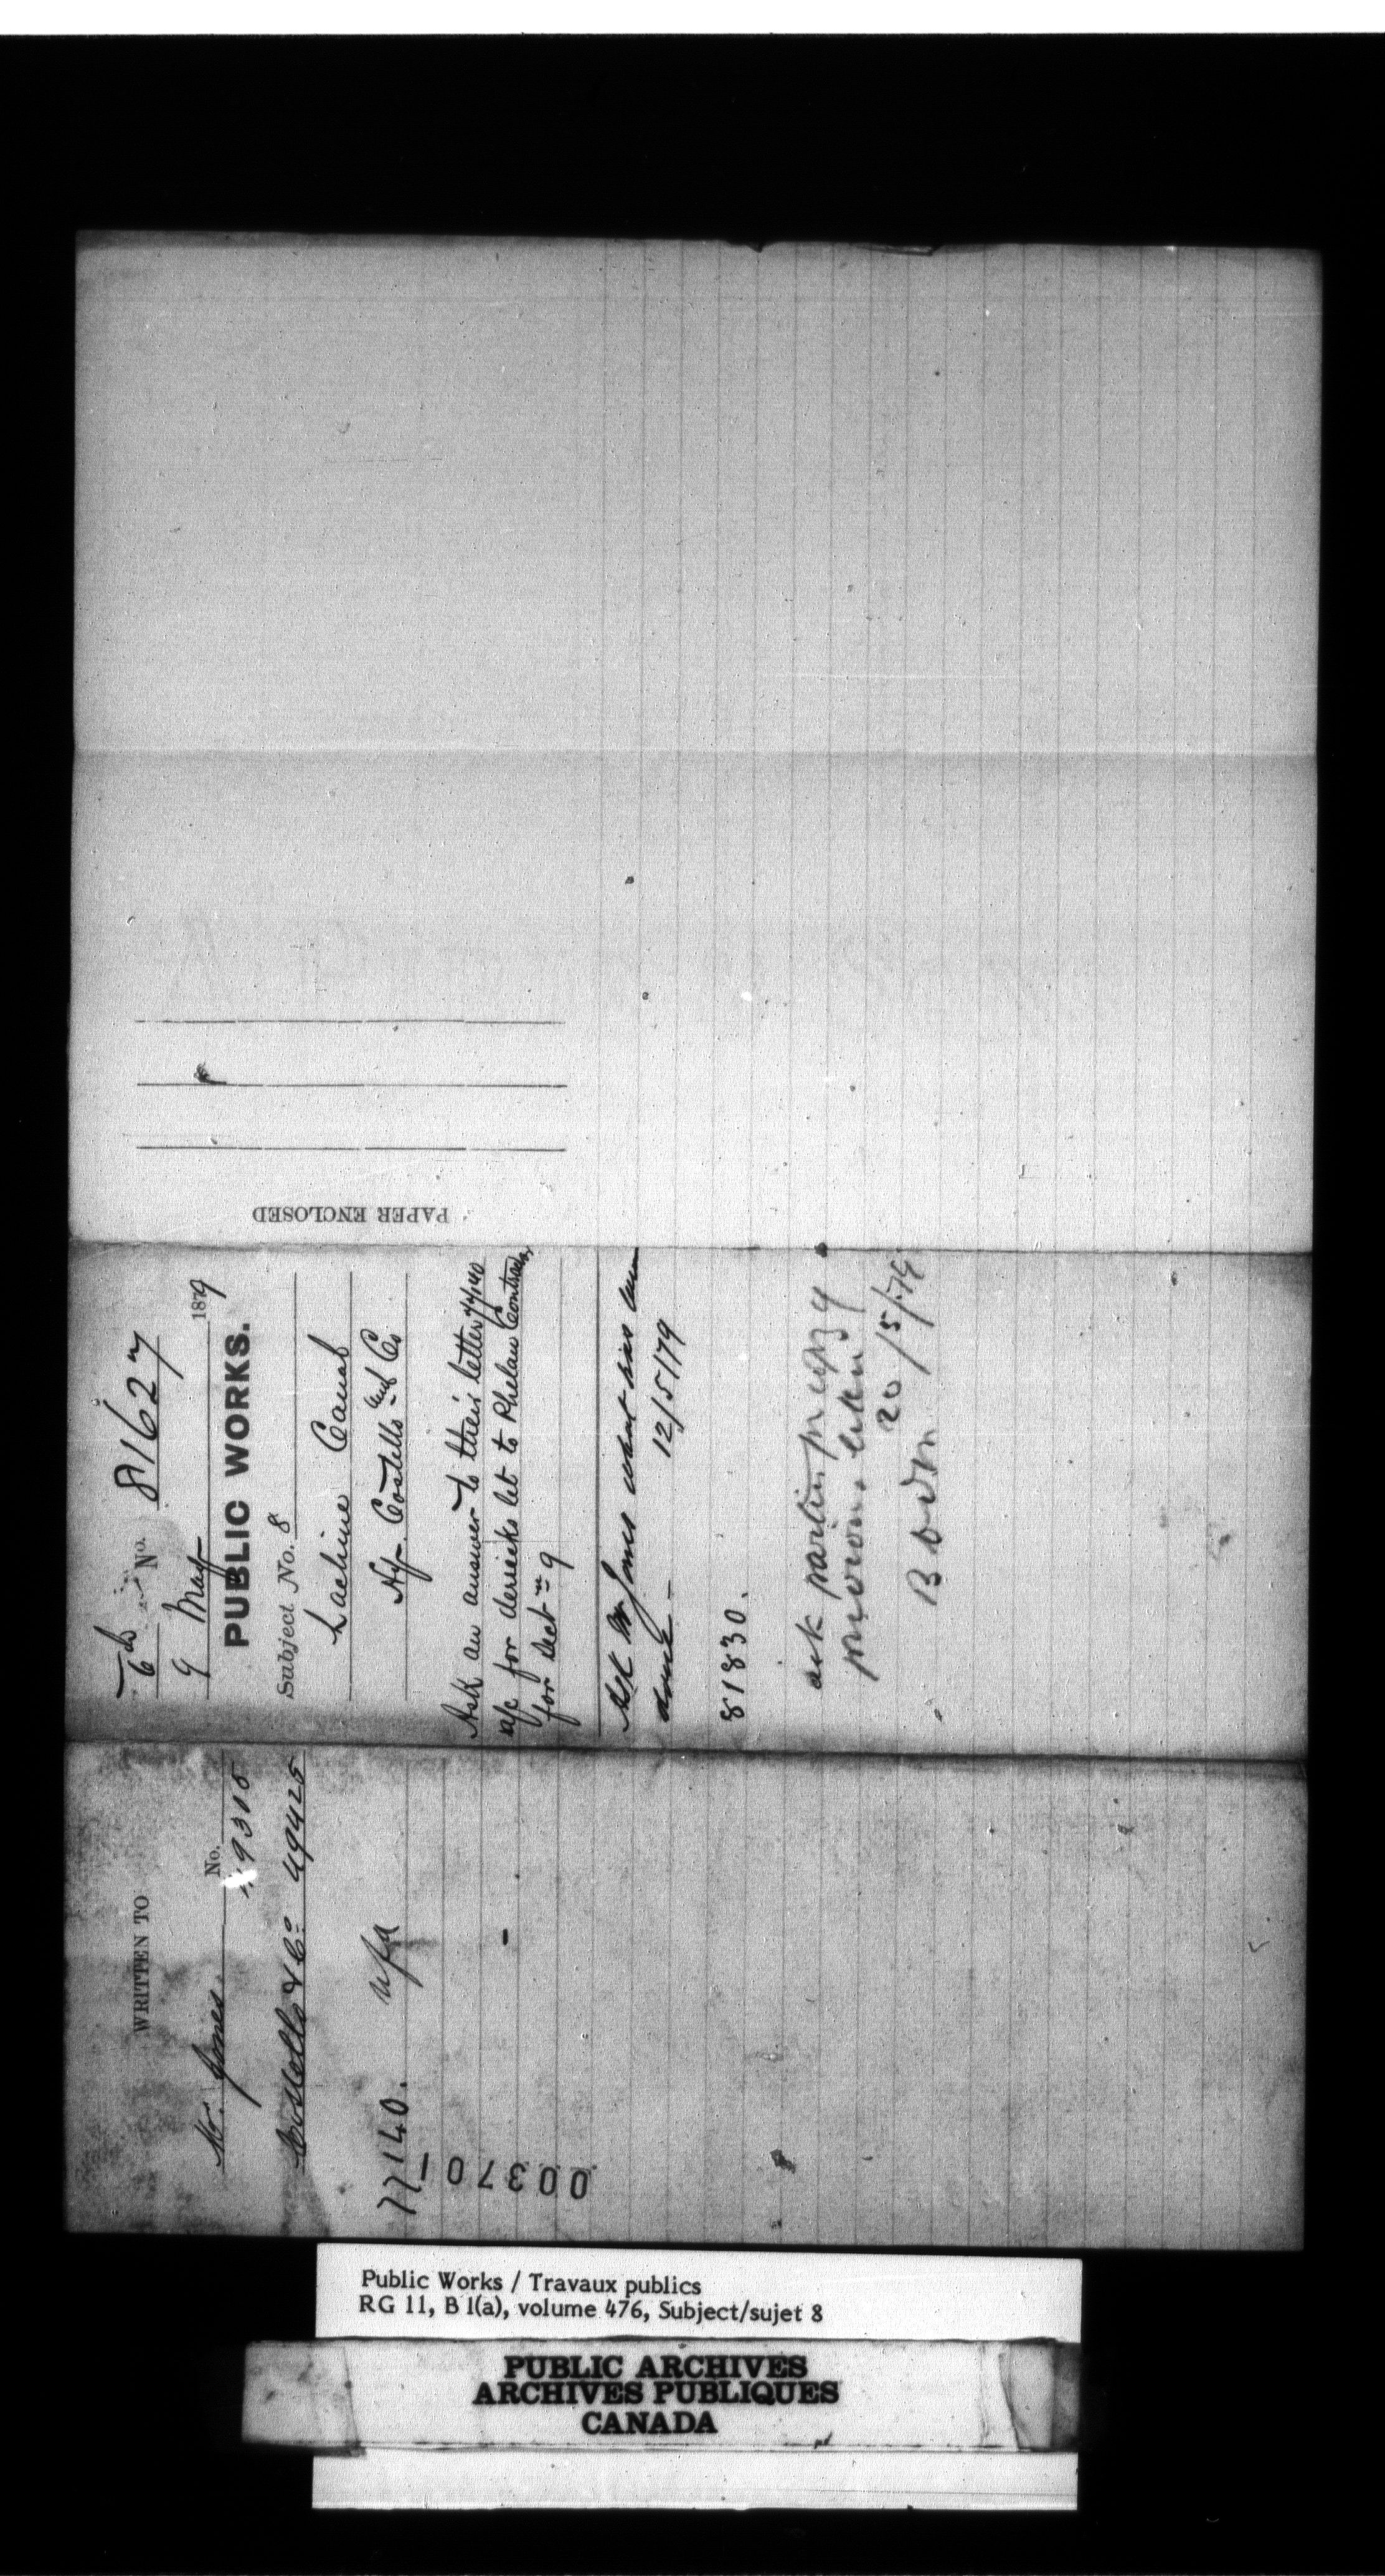 WRITTEN TO
No.
Mr. Jones
Costello & Co. 49425
77140.
003701
No. 81627
9 May 1879
PUBLIC WORKS.
Subject No. 8
Lachine Canal
Hy. Costello and Co
Ask an answer to their letter 77140
a/c for derricks let to Phelan Contractor
for Sect n 9
Ask Mr Jones what has been
done -
12/5/79
81830.
20/5/79
PAPER ENCLOSED
Public Works / Travaux publics
RG 11, B 1(a), volume 476, Subject/sujet 8
PUBLIC ARCHIVES
ARCHIVES PUBLIQUES
CANADA